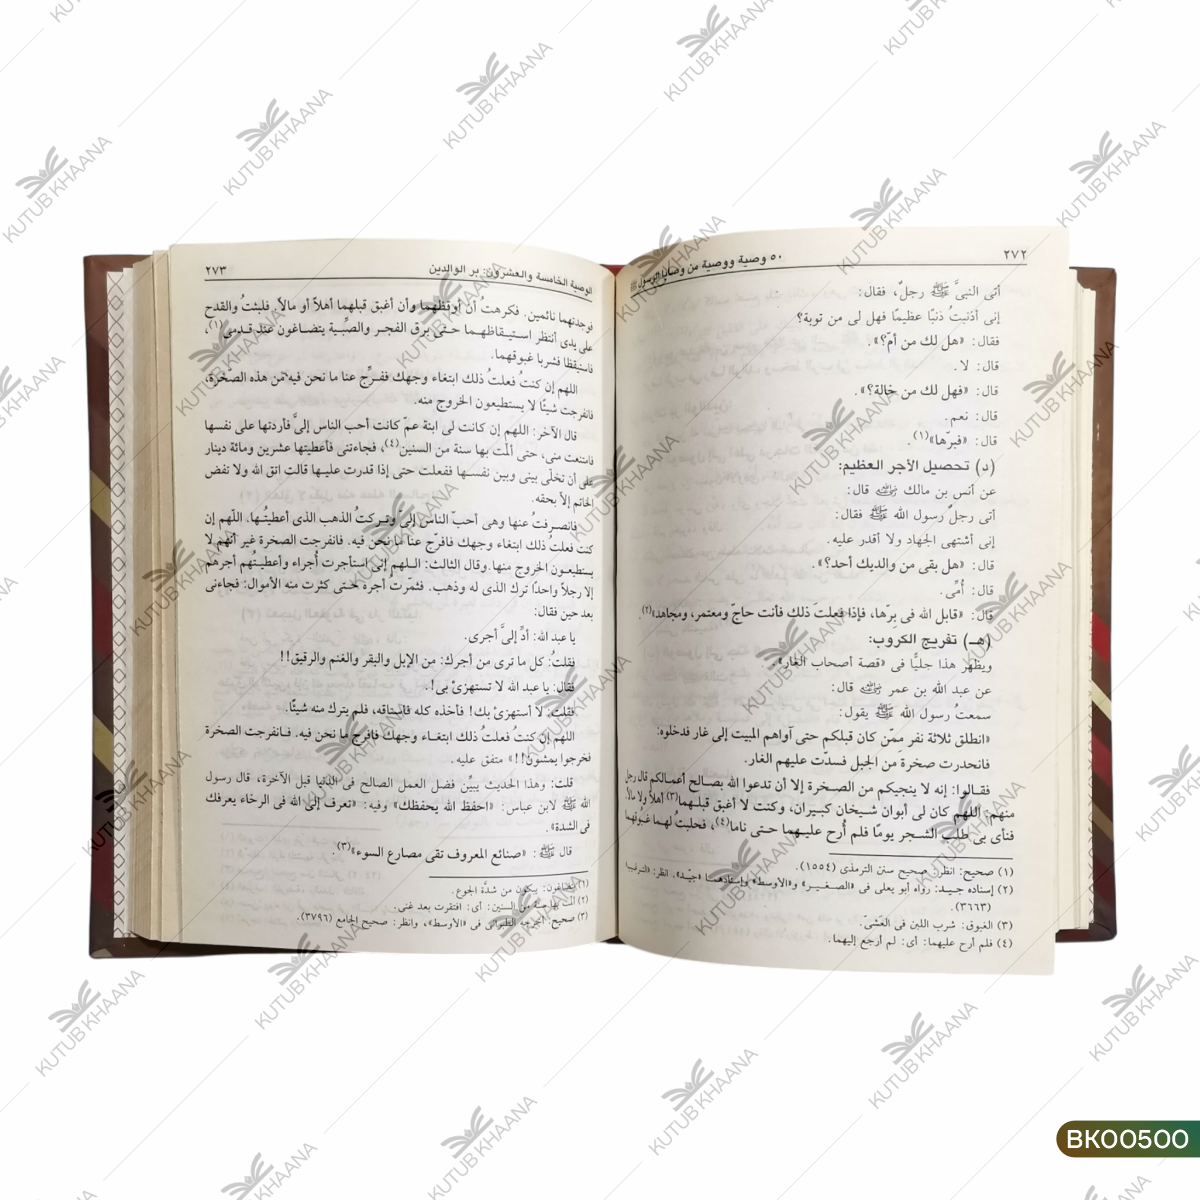 ٢٧٢
٥٠ وصية ووصية من وصايا الرسول ﷺ
أتى النبىَّ ﷺ رجلٌ، فقال:
إنى أذنبتُ ذنبًا عظيمًا فهل لى من توبة؟
فقال: «هل لك من أمّ؟».
قال: لا.
قال: «فهل لك من خالة؟».
قال: نعم.
قال: «فبرّها»(١).
(د) تحصيل الأجر العظيم:
عن أنس بن مالك رضي الله عنه قال:
أتى رجلٌ رسول الله ﷺ فقال:
إنى أشتهى الجهاد ولا أقدر عليه.
قال: «هل بقى من والديك أحد؟».
قال: أُمِّى.
قال: «قابل الله فى بِرّها، فإذا فعلتَ ذلك فأنت حاجّ ومعتمر، ومجاهد»(٢).
(هـ) تفريج الكروب:
ويظهر هذا جليًّا فى «قصة أصحاب الغار».
عن عبد الله بن عمر رضي الله عنه قال:
سمعتُ رسول الله ﷺ يقول:
«انطلق ثلاثة نفر مِمّن كان قبلكم حتى آواهم المبيت إلى غار فدخلوه:
فانحدرت صخرة من الجبل فسدّت عليهم الغار.
فقالوا: إنه لا ينجيكم من الصخرة إلا أن تدعوا الله بصالح أعمالكم قال رجل
منهم: اللهم كان لى أبوان شيخان كبيران، وكنت لا أغبق قبلهما(٣) أهلاً ولا مالاً.
فنأى بى طلب الشجر يومًا فلم أرح عليهما حتى ناما(٤)، فحلبتُ لهما غبوقهما
(١) صحيح: انظر: صحيح سنن الترمذى (١٥٥٤).
(٢) إسناده جيد: رواه أبو يعلى فى «الصغير» و«الأوسط» وإسنادهما «جيّد». انظر: «الترغيب
(٣٦٦٣).
(٣) الغبوق: شرب اللبن فى العَشىّ.
(٤) فلم أرح عليهما: أى: لم أرجع إليهما.
الوصية الخامسة والعشرون: بر الوالدين
٢٧٣
فوجدتهما نائمين. فكرهتُ أن أوقظهما وأن أغبق قبلهما أهلاً أو مالاً. فلبثتُ والقدح
على يدى أنتظر استيقاظهما حتى برق الفجر والصِّبية يتضاغون عند قدمى(١)،
فاستيقظا فشربا غبوقهما.
اللهم إن كنتُ فعلتُ ذلك ابتغاء وجهك ففرِّج عنا ما نحن فيه من هذه الصخرة،
فانفرجت شيئًا لا يستطيعون الخروج منه.
قال الآخر: اللهم إن كانت لى ابنة عمّ كانت أحب الناس إلىَّ فأردتها على نفسها
فامتنعت منى، حتى ألمّت بها سنة من السنين(٤)، فجاءتنى فأعطيتها عشرين ومائة دينار
على أن تخلّى بينى وبين نفسها ففعلت حتى إذا قدرت عليها قالت اتق الله ولا تفض
الخاتم إلاّ بحقه.
فانصرفتُ عنها وهى أحبّ الناس إلىّ وتركتُ الذهب الذى أعطيتُها. اللّهم إن
كنت فعلتُ ذلك ابتغاء وجهك فافرّج عنا ما نحن فيه. فانفرجت الصخرة غير أنهم لا
يستطيعون الخروج منها. وقال الثالث: اللهم إنى استأجرت أُجراء وأعطيتُهم أجرهم
إلا رجلاً واحدًا ترك الذى له وذهب. فثمّرت أجره حتى كثرت منه الأموال: فجاءنى
بعد حين فقال:
يا عبد الله: أدِّ إلىَّ أجرى.
فقلتُ: كل ما ترى من أجرك: من الإبل والبقر والغنم والرقيق!!
فقال: يا عبد الله لا تستهزئ بى!.
فقلت: لا أستهزئ بك! فأخذه كله فاستاقه، فلم يترك منه شيئًا.
اللهم إن كنتُ فعلتُ ذلك ابتغاء وجهك فافرج ما نحن فيه. فانفرجت الصخرة
فخرجوا يمشون!!» متفق عليه.
قلت: وهذا الحديث يبيِّن فضل العمل الصالح فى الدنيا قبل الآخرة، قال رسول
الله ﷺ لابن عباس: «احفظ الله يحفظك» وفيه: «تعرف إلى الله فى الرخاء يعرفك
فى الشدة».
قال ﷺ: «صنائع المعروف تقى مصارع السوء»(٣).
(١) يتضاغون: يبكون من شدَّة الجوع.
(٢) ألمت بها سنة من السنين: أى: افتقرت بعد غنى.
(٣) صحيح: أخرجه الطبرانى فى «الأوسط»، وانظر: صحيح الجامع (٣٧٩٦)
KUTUB KHAANA
BK00500